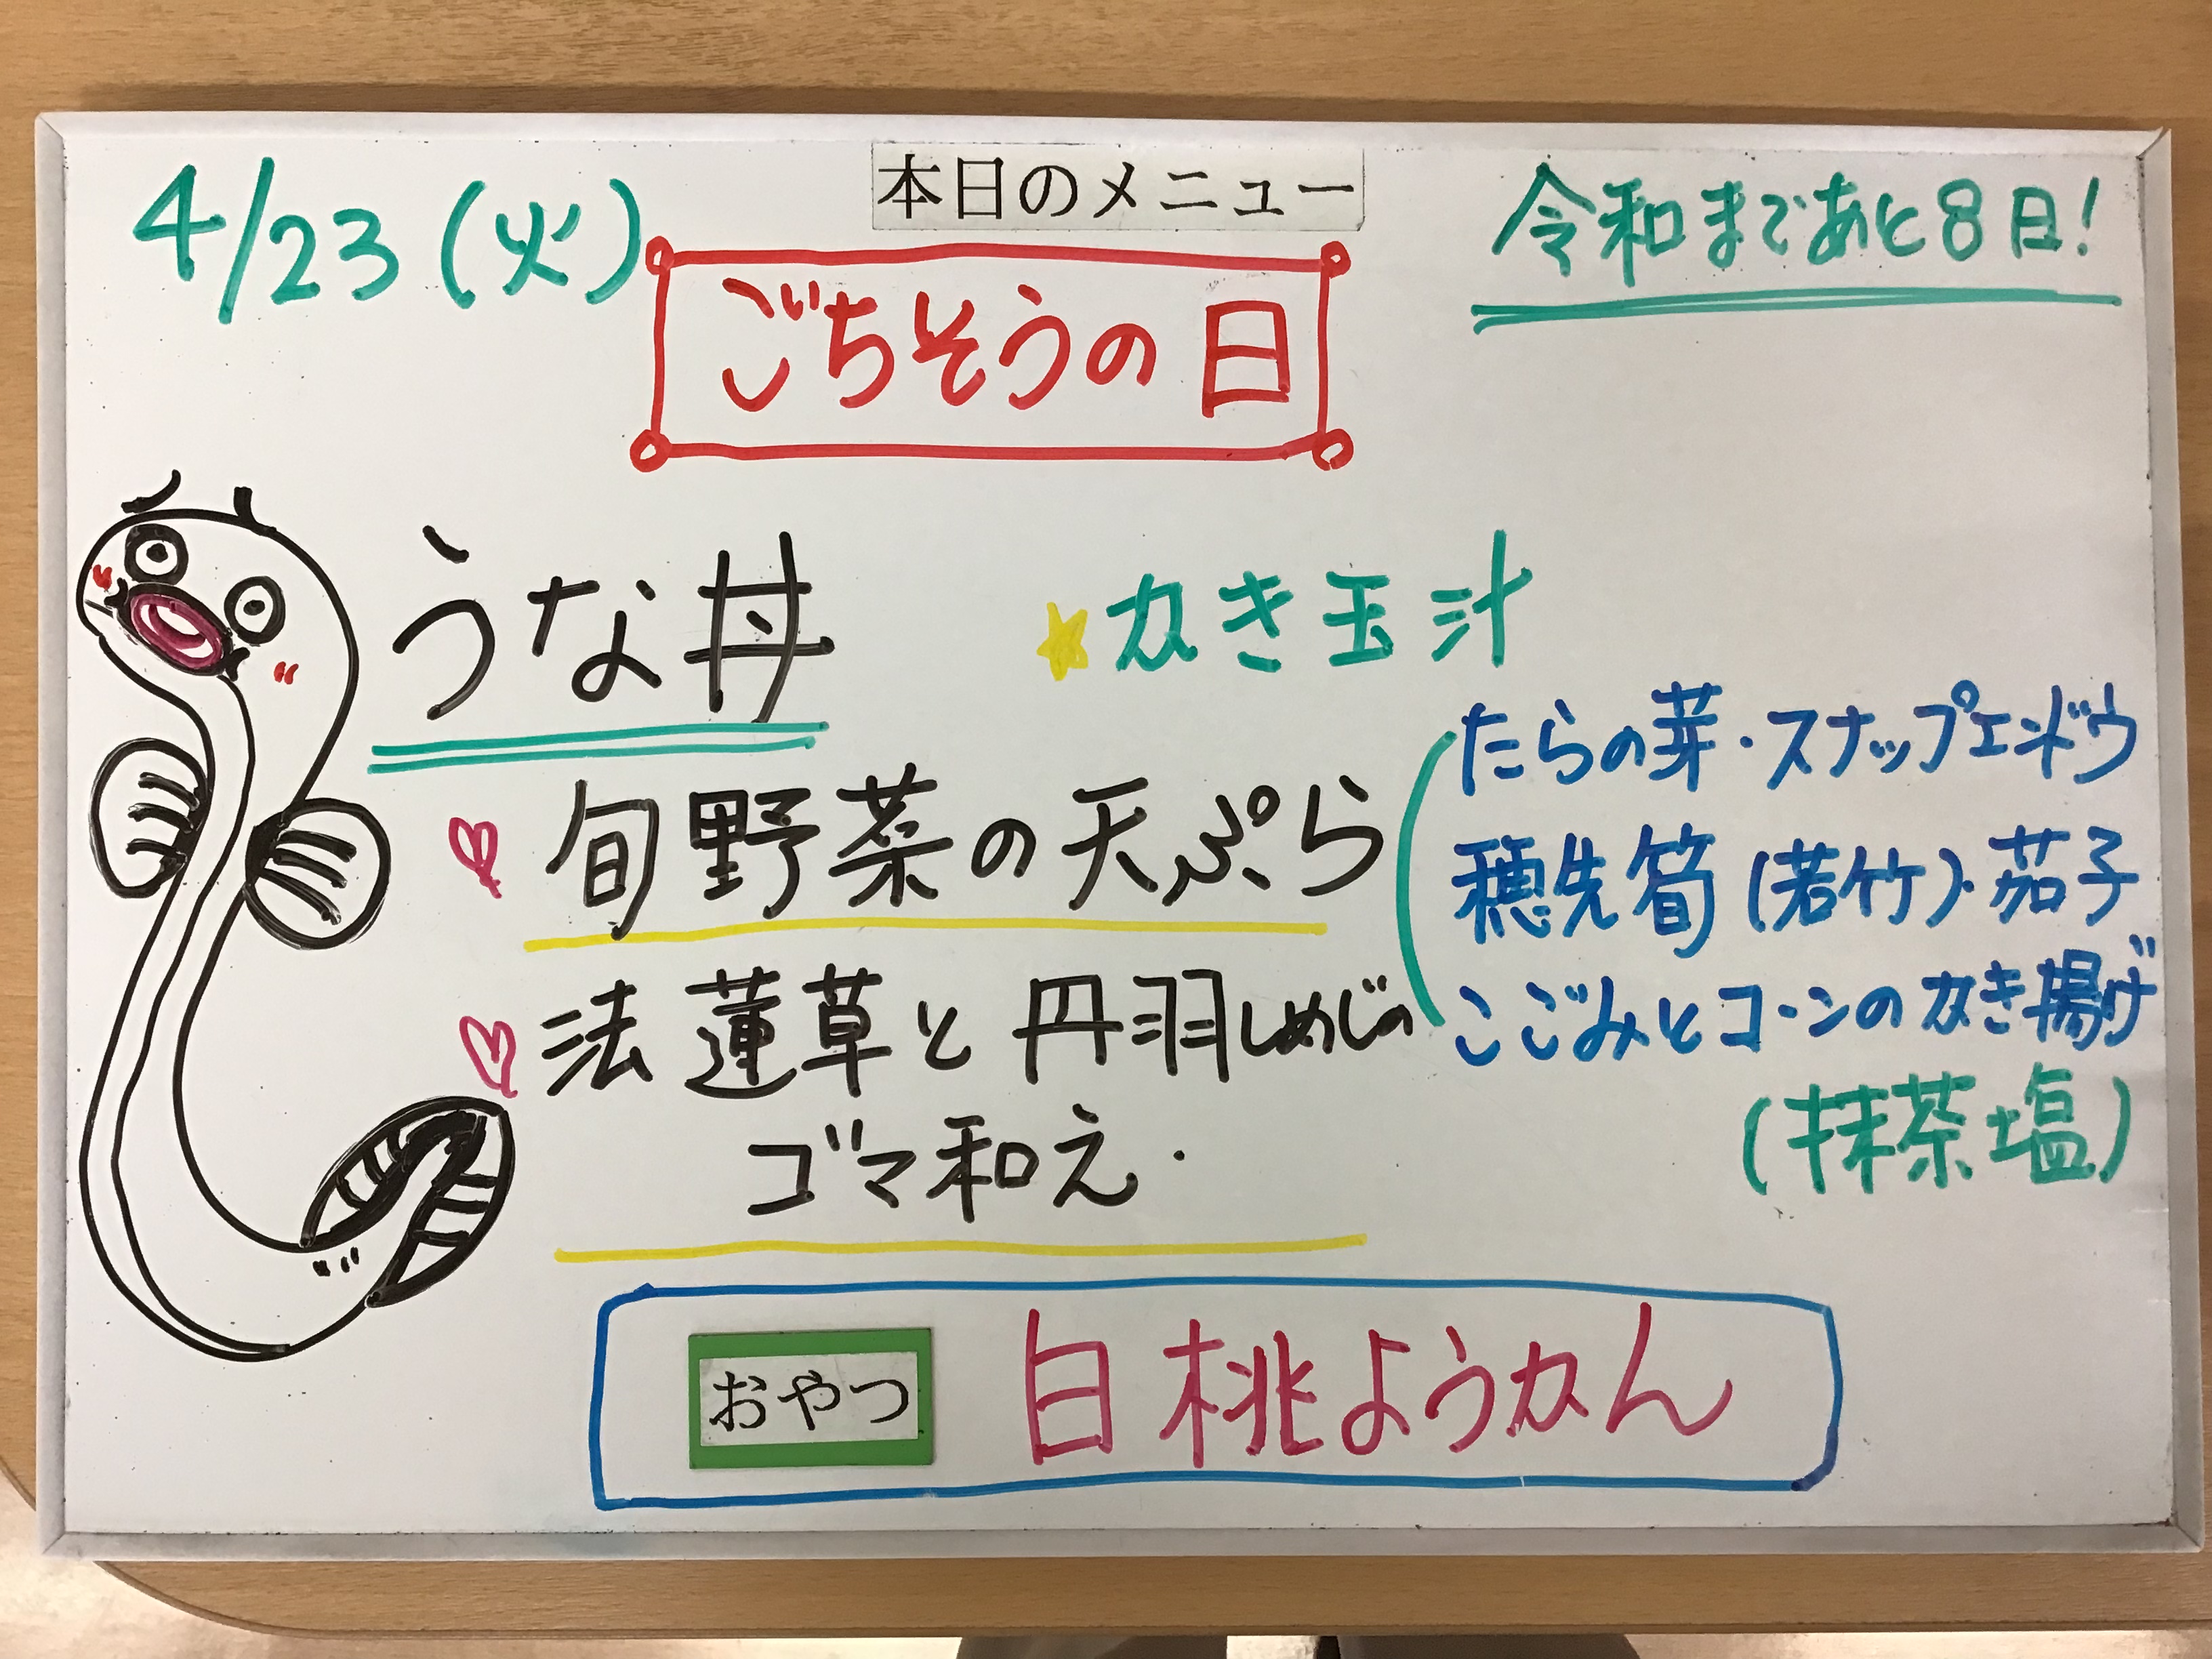 4/23(火)
本日のメニュー
令和まであと8日!
ごちそうの日
うな丼
かき玉汁
旬野菜の天ぷら
たらの芽・スナップエンドウ
穂先筍(若竹)・茄子
こごみとコーンのかき揚げ
(抹茶塩)
法蓮草と丹羽しめじの
ゴマ和え
おやつ
白桃ようかん